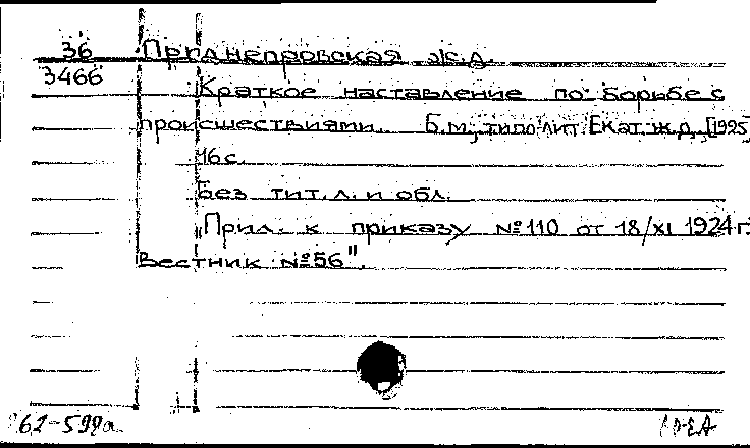 36 Приднепровская ж.д.
3466
Краткое наставление по борьбе с
происшествиями. Б.м., типо лит. Екат. ж.д., [1925]
16 с.
Без тит. л. и обл.
„Прил. к приказу №110 от 18/XI 1924 г.
Вестник №56".
62-599а